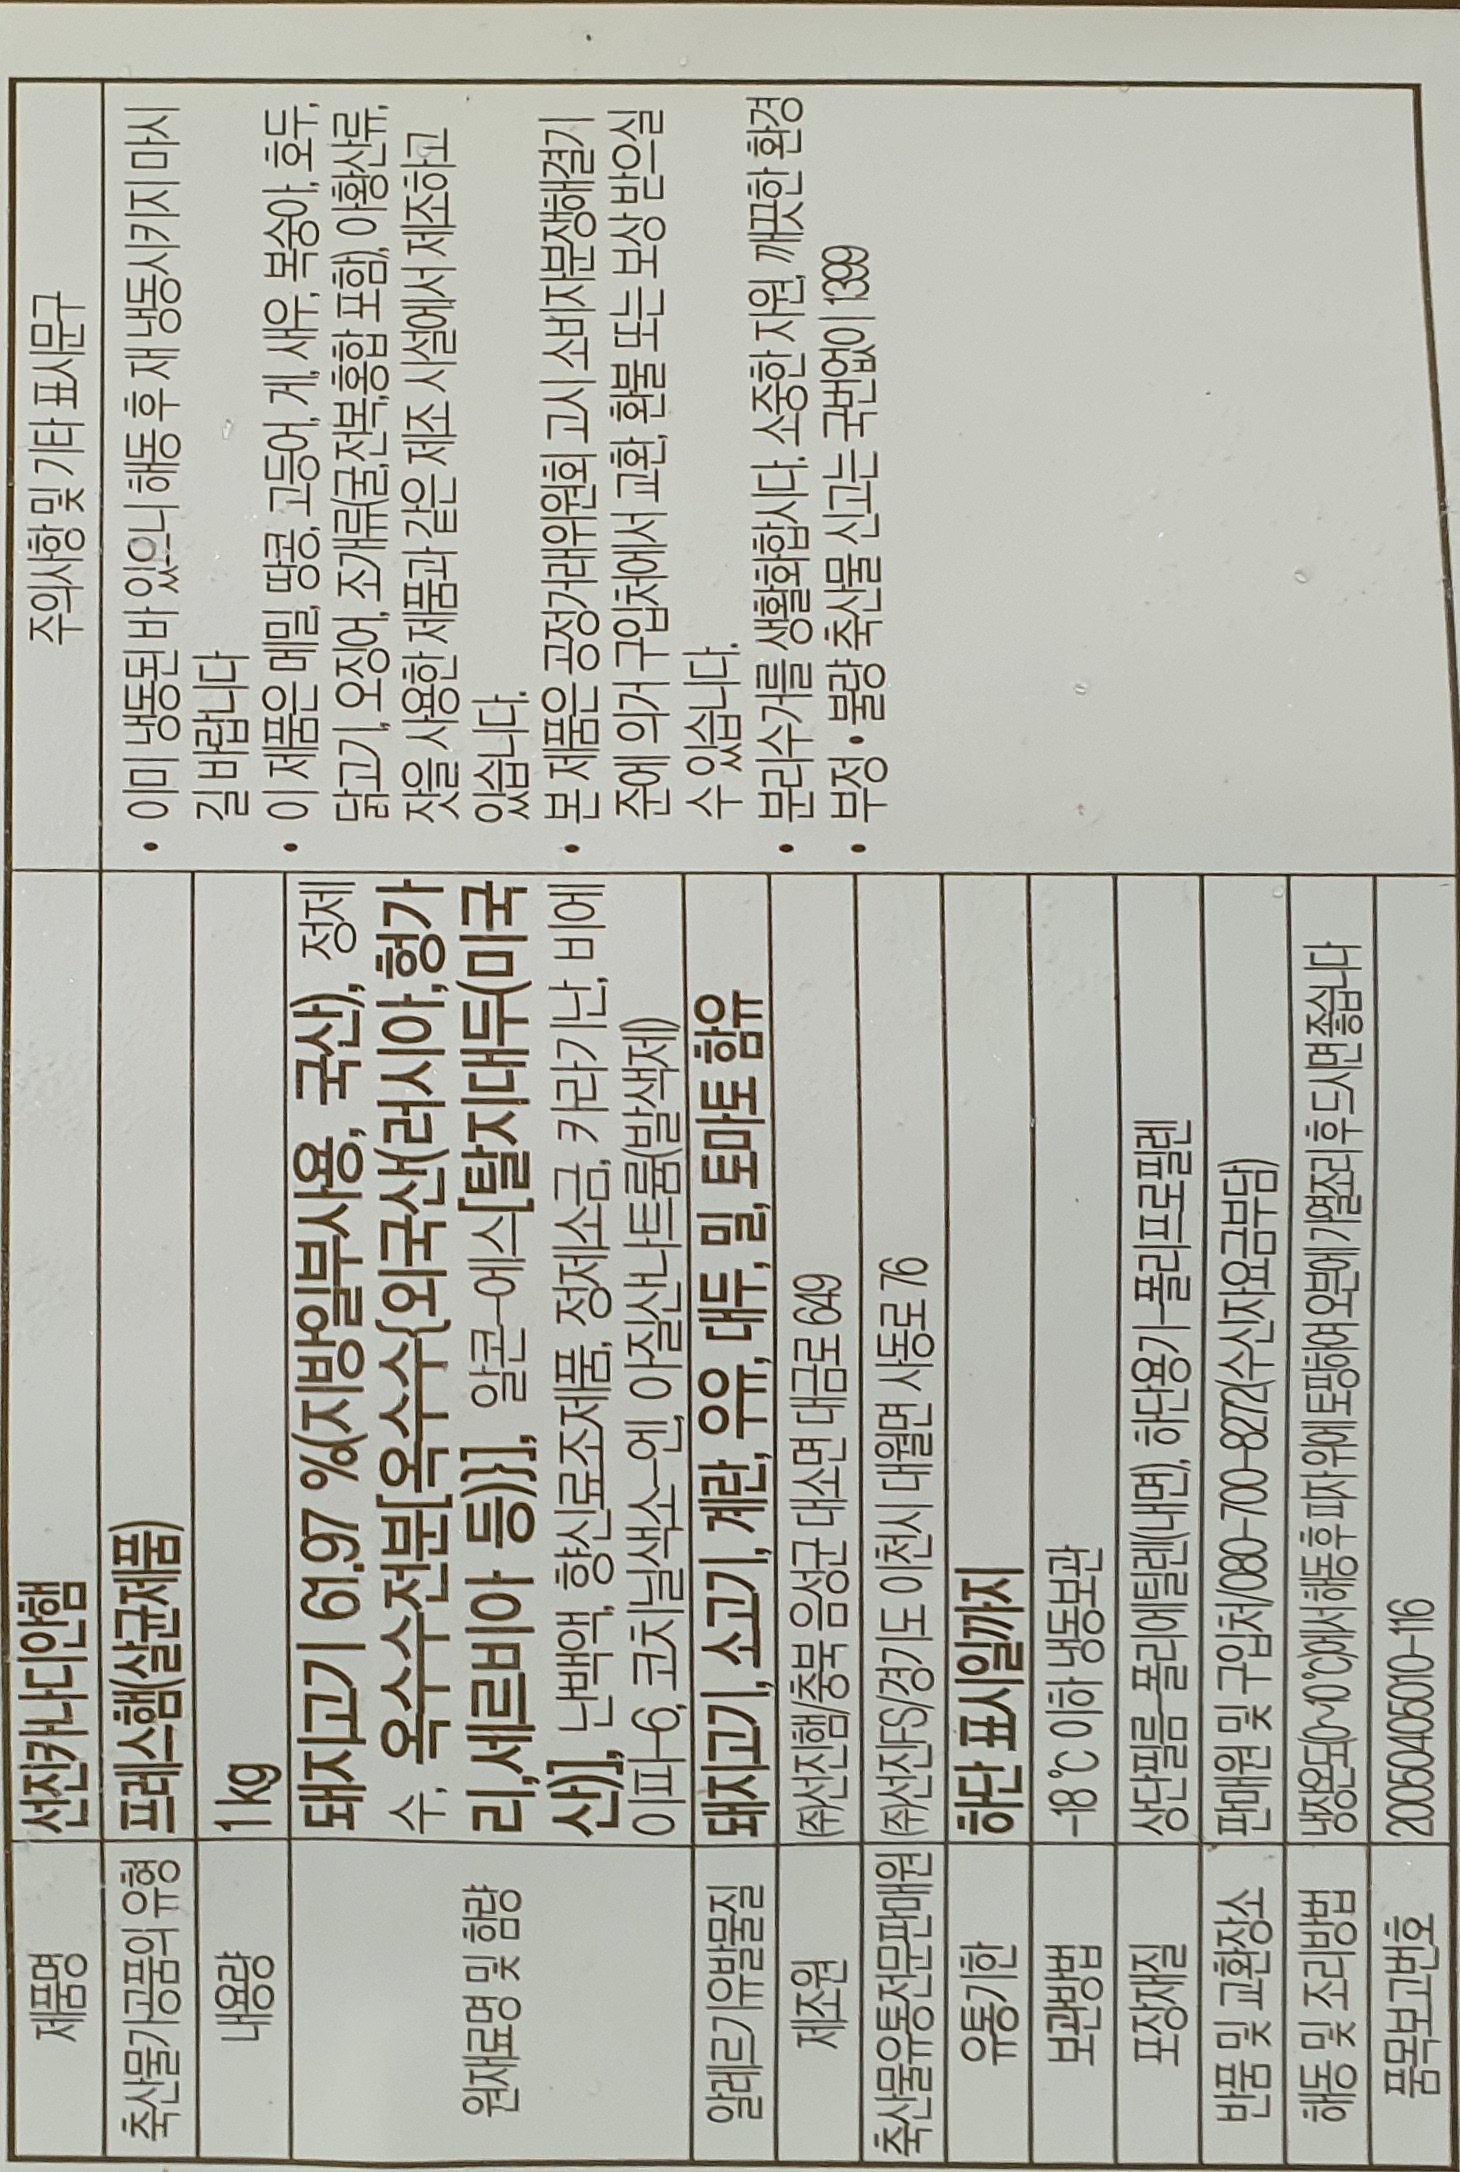 제품명
선진카나디안햄
축산물가공품의 유형
프레스햄(살균제품)
내용량
1 kg
원재료명 및 함량
돼지고기 61.97 %(지방일부사용, 국산), 정제
수, 옥수수전분[옥수수{외국산(러시아,헝가
리,세르비아 등)}], 알콘-에스[탈지대두(미국
산)], 난백액, 향신료조제품, 정제소금, 카라기난, 비에
이피-6, 코치닐색소-엔, 아질산나트륨(발색제)
알레르기유발물질
돼지고기, 소고기, 계란, 우유, 대두, 밀, 토마토 함유
제조원
(주)선진햄/충북 음성군 대소면 대금로 649
축산물유통전문판매원
(주)선진FS/경기도 이천시 대월면 사동로 76
유통기한
하단 표시일까지
보관방법
-18 ℃ 이하 냉동보관
포장재질
상단필름-폴리에틸렌(내면), 하단용기-폴리프로필렌
반품 및 교환장소
판매원 및 구입처/080-700-8272(수신자요금부담)
해동 및 조리방법
냉장온도(0~10℃)에서 해동 후 피자 위에 토핑하여 오븐에 가열조리 후 드시면 좋습니다
품목보고번호
2005040501​0-116
주의사항 및 기타 표시문구
• 이미 냉동된 바 있으니 해동 후 재 냉동시키지 마시
길 바랍니다
• 이 제품은 메밀, 땅콩, 고등어, 게, 새우, 복숭아, 호두,
닭고기, 오징어, 조개류(굴,전복,홍합 포함), 아황산류,
잣을 사용한 제품과 같은 제조 시설에서 제조하고
있습니다.
• 본 제품은 공정거래위원회 고시 소비자분쟁해결기
준에 의거 구입처에서 교환, 환불 또는 보상 받으실
수 있습니다.
• 분리수거를 생활화합시다. 소중한 자원, 깨끗한 환경
• 부정 • 불량 축산물 신고는 국번없이 1399